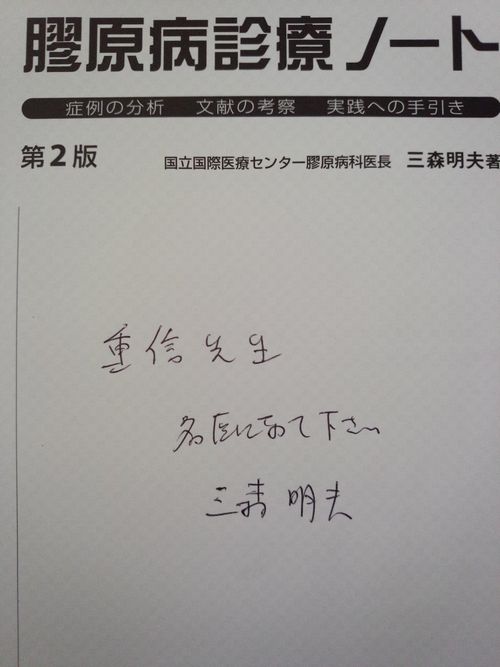 膠原病診療ノート
症例の分析 文献の考察 実践への手引き
第2版 国立国際医療センター膠原病科医長 三森明夫著
重信先生
名医になって下さい
三森明夫